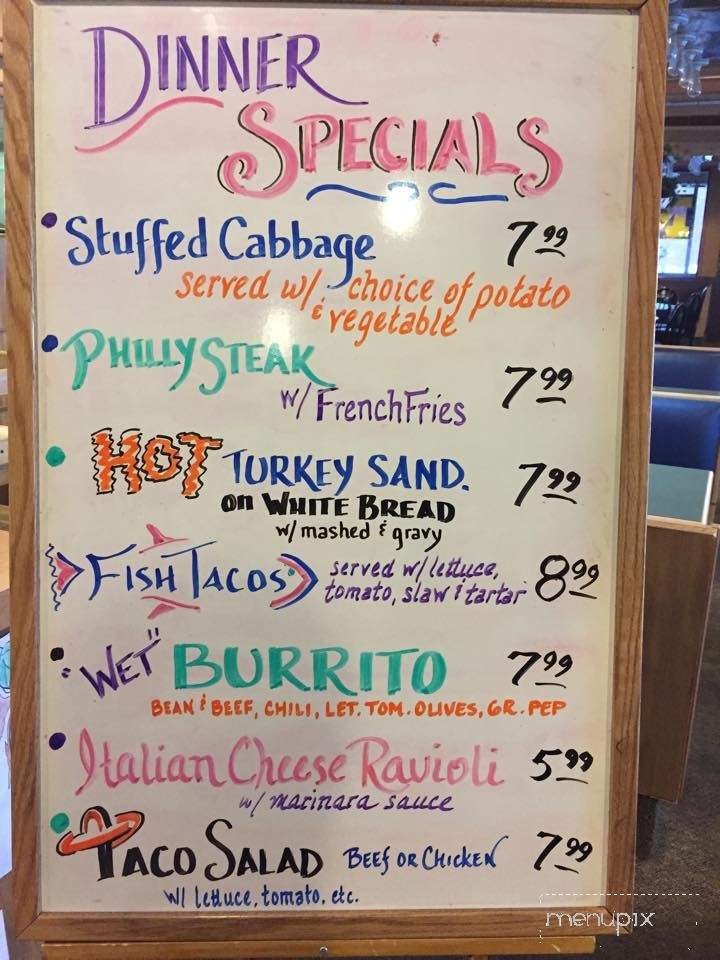 DINNER
SPECIALS
Stuffed Cabbage 7.99
served w/ choice of potato
& vegetable
PHILLY STEAK 7.99
w/ French Fries
HOT TURKEY SAND. 7.99
on WHITE BREAD
w/ mashed & gravy
FISH TACOS served w/ lettuce, 8.99
tomato, slaw & tartar
"WET" BURRITO 7.99
BEAN & BEEF, CHILI, LET. TOM. OLIVES, GR. PEP
Italian Cheese Ravioli 5.99
w/ marinara sauce
TACO SALAD BEEF OR CHICKEN 7.99
w/ lettuce, tomato, etc.
menupix